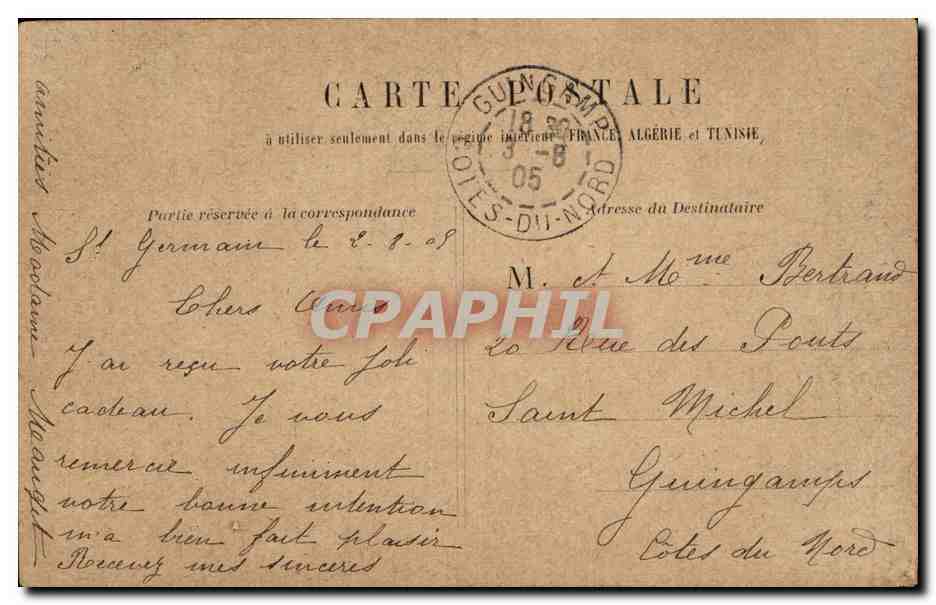 CARTE POSTALE
à utiliser seulement dans le régime intérieur (FRANCE, ALGÉRIE et TUNISIE)
GUINGAMP
18 30
3 -8
05
COTES-DU-NORD
Partie réservée à la correspondance
St Germain le 2-8-05
Chers Amis
J'ai reçu votre joli
cadeau. Je vous
remercie infiniment
votre bonne intention
m'a bien fait plaisir
Recevez mes sincères
amitiés Madame Mauget
Adresse du Destinataire
M. et Mme Bertrand
20 Rue des Ponts
Saint Michel
Guingamps
Côtes du Nord
CPAPHIL